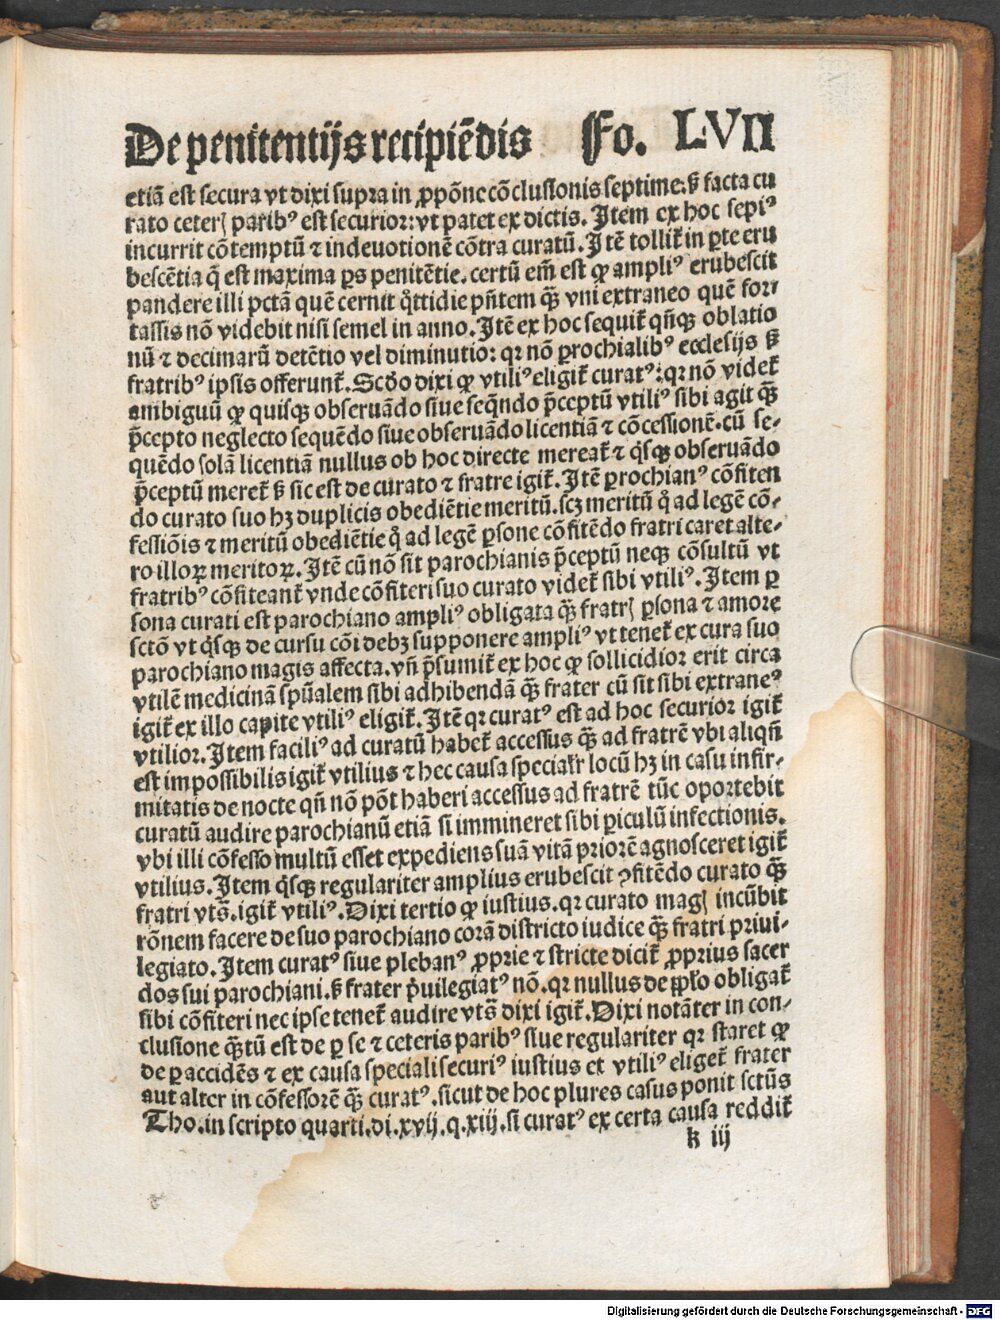 De penitentijs recipiēdis Fo. LVII
etiā est secura vt dixi supra in ꝓpōne cōclusionis septime. sꝫ facta cu
rato ceterꝭ paribꝰ est securior: vt patet ex dictis. Item ex hoc sepiꝰ
incurrit cōtemptū ⁊ indeuotionē cōtra curatū. Itē tollit̄ in ꝑte eru
bescētia q̄ est maxima ꝑs penitētie. certū em̄ est ꝙ ampliꝰ erubescit
pandere illi pctā quē cernit q̊ttidie pn̄tem qꝫ̄ vni extraneo quē for⸗
tassis nō videbit nisi semel in anno. Itē ex hoc sequit̄ qn̄qꝫ oblatio
nū ⁊ decimarū detētio vel diminutio: qꝛ nō ꝑrochialibꝰ ecclesijs sꝫ
fratribꝰ ipsis offerunt̄. Scd̓o dixi ꝙ vtiliꝰ eligit̄ curatꝰ: qꝛ nō videt̄
ambiguū ꝙ quisqꝫ obseruādo siue seq̄ndo p̄ceptū vtiliꝰ sibi agit qꝫ̄
p̄cepto neglecto sequēdo siue obseruādo licentiā ⁊ cōcessionē. cū se⸗
quēdo solā licentiā nullus ob hoc directe mereat̄ ⁊ q̇sqꝫ obseruādo
p̄ceptū meret̄ sꝫ sic est de curato ⁊ fratre igit̄. Itē ꝑrochianꝰ cōfiten
do curato suo hꝫ duplicis obediētie meritū. scꝫ meritū q̊ ad legē cō⸗
fessiōis ⁊ meritū obediētie q̊ ad legē ꝑsone cōfitēdo fratri caret alte⸗
ro illoꝝ meritoꝝ. Itē cū nō sit parochianis p̄ceptū neqꝫ cōsultū vt
fratribꝰ cōfiteant̄ vnde cōfiteri suo curato videt̄ sibi vtiliꝰ. Item ꝑ
sona curati est parochiano ampliꝰ obligata qꝫ̄ fratrꝭ ꝑsona ⁊ amore
sctō vt q̇sqꝫ de cursu cōi debꝫ supponere ampliꝰ vt tenet̄ ex cura suo
parochiano magis affecta. vn̄ p̄sumit̄ ex hoc ꝙ sollicidior erit circa
vtilē medicinā spūalem sibi adhibendā qꝫ̄ frater cū sit sibi extraneꝰ
igit̄ ex illo capite vtiliꝰ eligit̄. Itē qꝛ curatꝰ est ad hoc securior igit̄
vtilior. Item faciliꝰ ad curatū habet̄ accessus qꝫ̄ ad fratrē vbi aliqn̄
est impossibilis igit̄ vtilius ⁊ hec causa specialr̄ locū hꝫ in casu infir⸗
mitatis de nocte qn̄ nō pōt haberi accessus ad fratrē tūc oportebit
curatū audire parochianū etiā si immineret sibi ꝑiculū infectionis.
vbi illi cōfesso multū esset expediens suā vitā priorē agnosceret igit̄
vtilius. Item q̇sqꝫ regulariter amplius erubescit ꝯfitēdo curato qꝫ̄
fratri vts̄. igit̄ vtiliꝰ. Dixi tertio ꝙ iustius. qꝛ curato magꝭ incūbit
rōnem facere de suo parochiano corā districto iudice qꝫ̄ fratri priui⸗
legiato. Item curatꝰ siue plebanꝰ ꝓprie ⁊ stricte dicit̄ ꝓprius sacer
dos sui parochiani. sꝫ frater ṗuilegiatꝰ nō. qꝛ nullus de pp̄lo obligat̄
sibi cōfiteri nec ipse tenet̄ audire vts̄ dixi igit̄. Dixi notāter in con⸗
clusione qꝫ̄tū est de ꝑ se ⁊ ceteris paribꝰ siue regulariter qꝛ staret ꝙ
de ꝑ accidēs ⁊ ex causa speciali securiꝰ iustius et vtiliꝰ eliget̄ frater
aut alter in cōfessorē qꝫ̄ curatꝰ. sicut de hoc plures casus ponit sctūs
Tho. in scripto quarti. di. xvij. q. xiij. si curatꝰ ex certa causa reddit̄
k iij
Digitalisierung gefördert durch die Deutsche Forschungsgemeinschaft - DFG